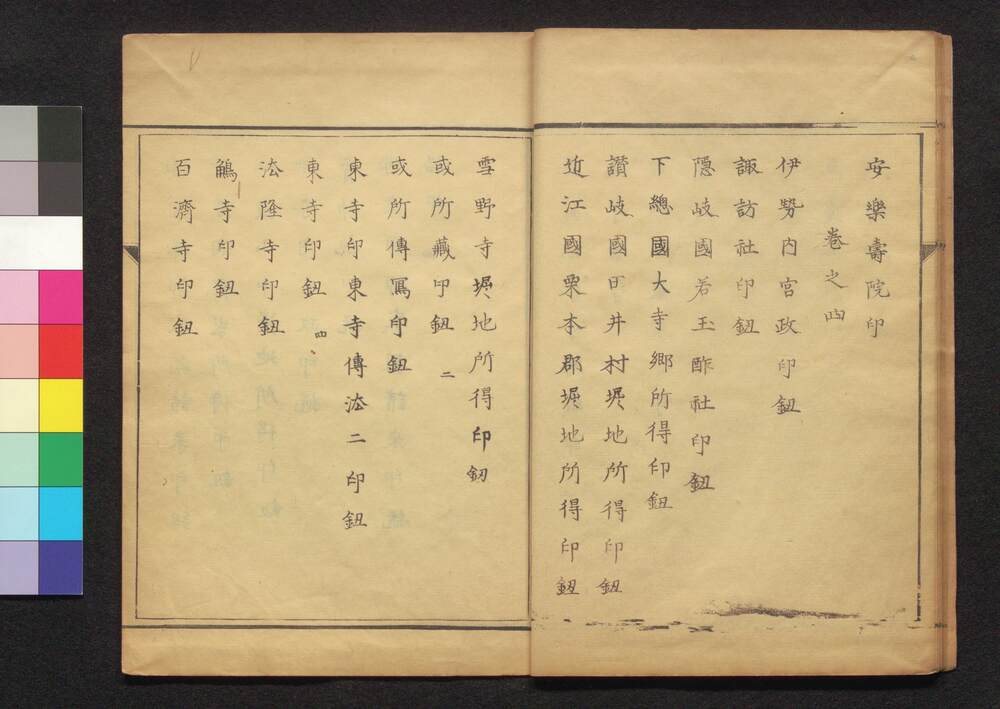 安樂壽院印
卷之四
伊勢内宮政印鈕
諏訪社印鈕
隠岐國若玉酢社印鈕
下總國大寺郷所得印鈕
讃岐國田井村堀地所得印鈕
近江國栗本郡堀地所得印鈕
雪野寺堀地所得印鈕
或所藏印鈕二
或所傳寫印鈕
東寺印東寺傳法二印鈕
東寺印鈕四
法隆寺印鈕
鵤寺印鈕
百濟寺印鈕